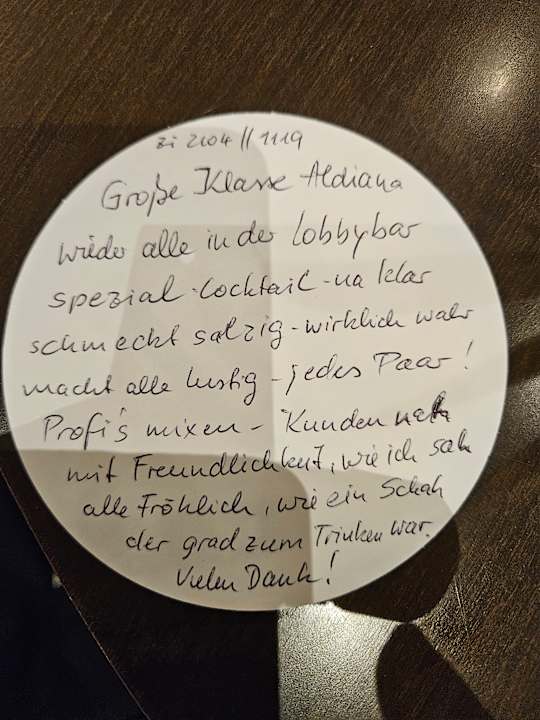 Zi 2104 // 1119
Große Klasse Aldiana
wieder alle in der Lobbybar
spezial-Cocktail-na klar
schmeckt salzig-wirklich wahr
macht alle lustig-jedes Paar!
Profi's mixen-Kunden nah
mit Freundlichkeit, wie ich sah
alle Fröhlich, wie ein Schah
der grad zum Trinken war.
Vielen Dank!